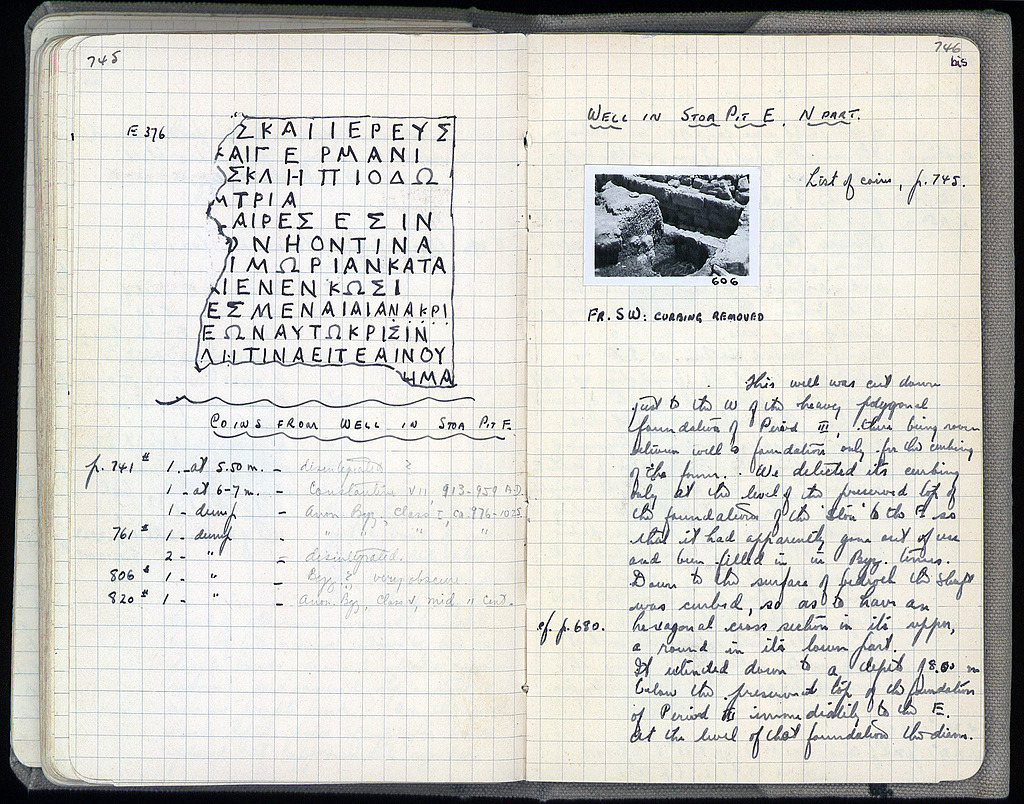 745
E 376
ΣΚΑΙΙΕΡΕΥΣ
ΚΑΙΓΕΡΜΑΝΙ
ΣΚΛΗΠΙΟΔΩ
ΤΡΙΑ
ΑΙΡΕΣΕΣΙΝ
ΝΗΟΝΤΙΝΑ
ΙΜΩΡΙΑΝΚΑΤΑ
ΙΕΝΕΝΚΩΣΙ
ΕΣΜΕΝΑΙΑΙΑΝΑΚΡΙ
ΕΩΝΑΥΤΩΚΡΙΣΙΝ
ΛΗΤΙΝΑΕΙΤΕΑΙΝΟΥ
ΗΜΑ
COINS FROM WELL IN STOA PIT E.
p. 741 # 1. - at 5.50 m. - disintegrated
1 - at 6-7 m. - Constantine VII 913-959 A.D.
1 - dump - Anon. Byz., Class I, ca. 976-1025
761 # 1 - dump - " " " "
2 - " - disintegrated.
806 # 1 - " - Byz. very obscure
820 # 1 - " - Anon. Byz., Class V, mid 11 cent.
746
bis
WELL IN STOA PIT E, N PART.
List of coins, p. 745.
606
FR. SW: CURBING REMOVED
This well was cut down
just to the W of the heavy polygonal
foundation of Period III, there being room
between well & foundation only for the curbing
of the former. We detected its curbing
only at the level of the preserved top of
the foundations of the 'Stoa' to the E so
that it had apparently gone out of use
and been filled in in Byz. times.
Down to the surface of bedrock the shaft
was curbed, so as to have an
cf. p. 680. hexagonal cross section in its upper,
a round in its lower part.
It extended down to a depth of 8.00 m
below the preserved top of the foundation
of Period III immediately to the E.
At the level of that foundation the diam.